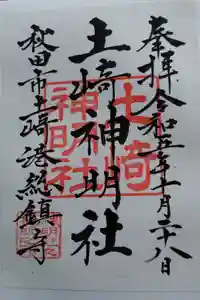 奉拝 令和五年十一月二十八日
土崎神明社
土崎神明社
秋田市土崎港総鎮守